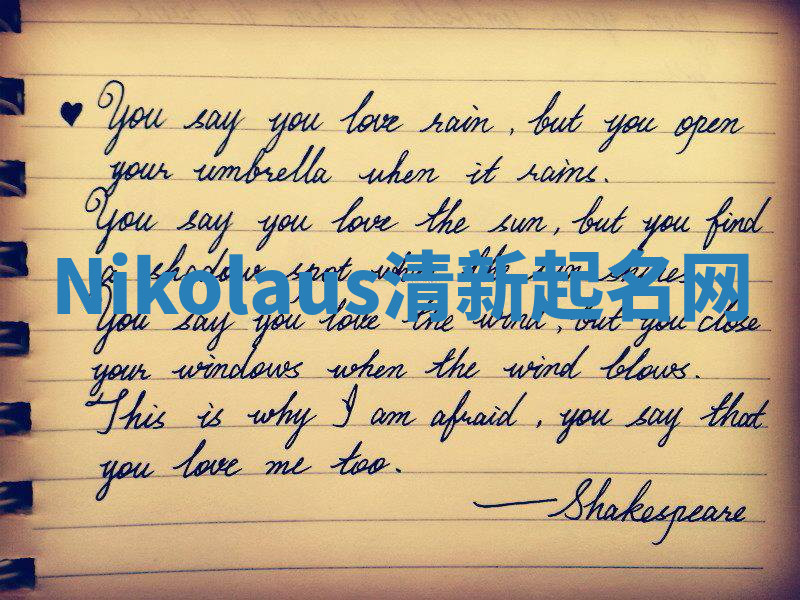 ♥ You say you love rain, but you open
your umbrella when it rains.
You say you love the sun, but you find
a shadow spot when the sun shines.
Nikolaus清新起名网
You say you love the wind, but you close
your windows when the wind blows.
This is why I am afraid, you say that
you love me too.
—Shakespeare